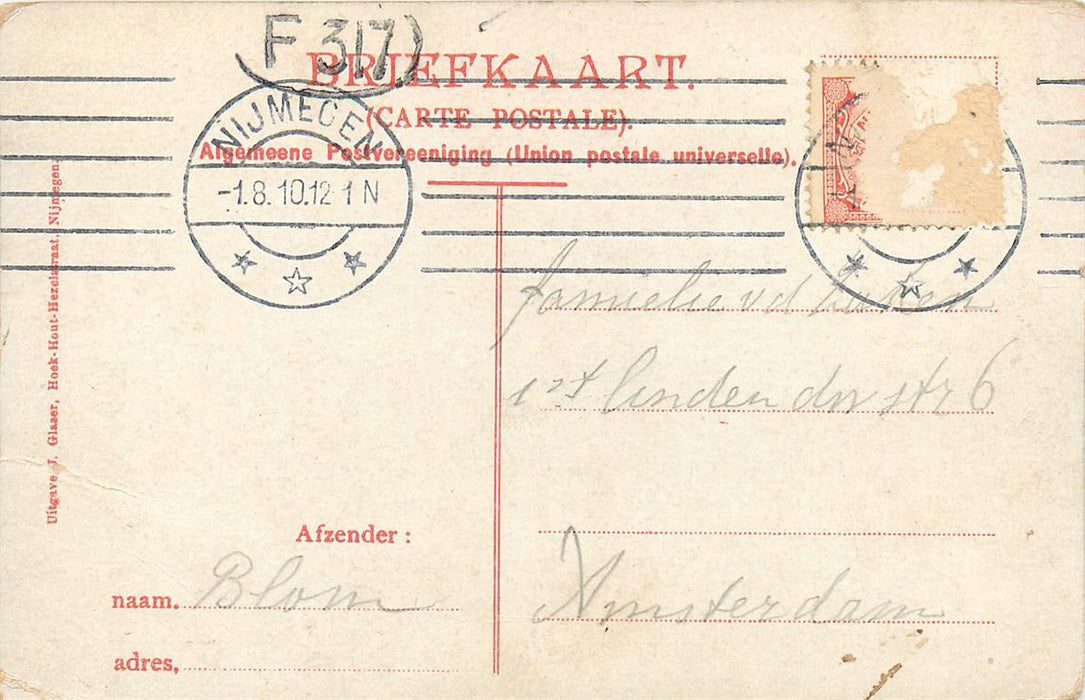 F 317
BRIEFKAART.
(CARTE POSTALE).
Algemeene Postvereeniging (Union postale universelle).
NIJMEGEN
-1.8.10.12-1 N
Uitgave J. Glaaer, Hoek-Hout-Hezelstraat, Nijmegen.
familie vd
1st Linden dw str 6
Amsterdam
Afzender :
naam. Blom
adres.